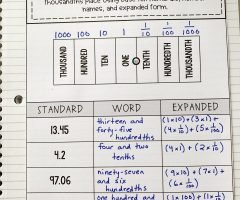 thousandths place using base
names, and expanded form.
1000 100 10 1 1/10 1/100 1/1000
THOUSAND HUNDRED TEN ONE TENTH HUNDREDTH THOUSANDTH
STANDARD WORD EXPANDED
13.45 thirteen and forty-five hundredths (1×10)+(3×1)+(4×1/10)+(5×1/100)
4.2 four and two tenths (4×1)+(2×1/10)
97.06 ninety-seven and six hundredths (9×10)+(7×1)+(6×1/100)
one hundred and (1×100)+(1×